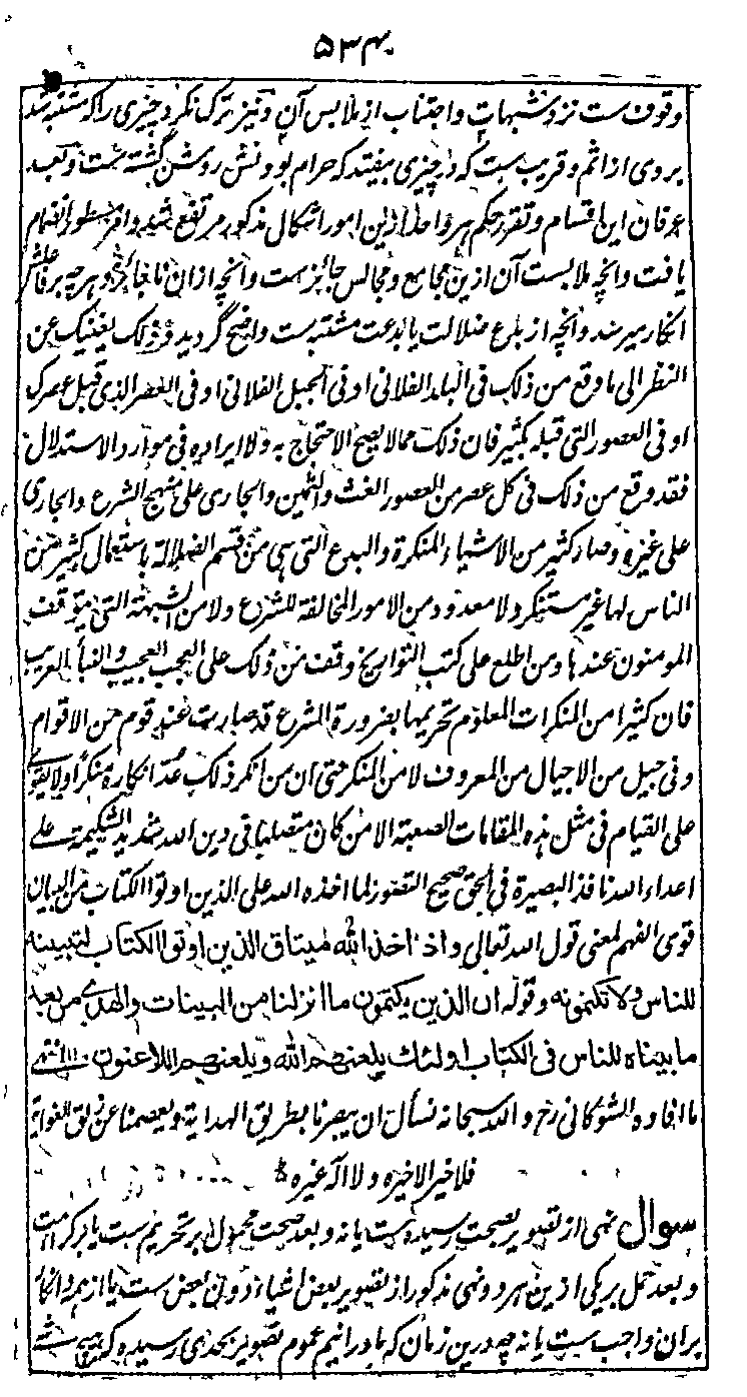 ۵۳۴
وقوف ست نزد شبهات و اجتناب از ملابس آن و نیز ترک نکرد چیزی را که مشتبه شد
بر وی از اثم و قریب ست که در چیزی بیفتد که حرام بودنش روشن گشته ست و بعد
عرفان این اقسام و تقرر حکم هر واحد ازین امور اشکال مذکور مرتفع شد و امر مسطور انضمام
یافت و آنچه ملابست آن ازین مجامع و مجالس جائز ست و آنچه از ان ناجائز و هرچه بر فاعلش
انکار میرسد و آنچه از بدع ضلالت یا بدعت مشتبه ست واضح گردید و ذلک یغنیک عن
النظر الی ما وقع من ذلک فی البلد الفلانی او فی الجبل الفلانی او فی العصر الذی قبل عصرک
او فی العصور التی قبله بکثیر فان ذلک مما لا یصح الاحتجاج به ولا ایراده فی موارد الاستدلال
فقد وقع من ذلک فی کل عصر من العصور الغث والثمین والجاری علی منهج الشرع والجاری
علی غیره وصار کثیر من الاشیاء المنکرة والبدع التی هی من قسم الضلالة باستعمال کثیر من
الناس لها غیر مستنکر ولا معدود من الامور المخالفة للشرع ولا من الشبهة التی یتوقف
المومنون عندها ومن اطلع علی کتب التواریخ وقف من ذلک علی العجب العجیب والنبأ الغریب
فان کثیرا من المنکرات المعلوم تحریمها بضرورة الشرع قد صارت عند قوم من الاقوام
وفی جیل من الاجیال من المعروف لا من المنکر حتی ان من انکر ذلک عُدّ انکاره منکراً ولا یقوی
علی القیام فی مثل هذه المقامات الصعبة الا من کان متصلبا فی دین الله شدید الشکیمة علی
اعداء الله نافذ البصیرة فی الحق صحیح التصور لما اخذه الله علی الذین اوتوا الکتاب من البیان
قوی الفهم لمعنی قول الله تعالی واذ اخذ الله میثاق الذین اوتوا الکتاب لتبیننه
للناس ولا تکتمونه وقوله ان الذین یکتمون ما انزلنا من البینات والهدی من بعد
ما بیناه للناس فی الکتاب اولئک یلعنهم الله ویلعنهم اللاعنون انتهی
ما افاده الشوکانی رح والله سبحانه نسأل ان یبصرنا بطریق الهدایة ویعصمنا عن زلق الغوایة
فلا خیر الا خیره ولا اله غیره
سوال نهی از تصویر بصحت رسیده ست یا نه و بعد صحت محمول بر تحریم ست یا بر کراهت
و بعد حمل بر یکی ازین هر دو نهی مذکور از تصویر بعض اشیاء دون بعض ست یا از همه و انکار
بر ان واجب ست یا نه چه درین زمان که ما در انیم عموم تصویر بحدی رسیده که هیچ شی